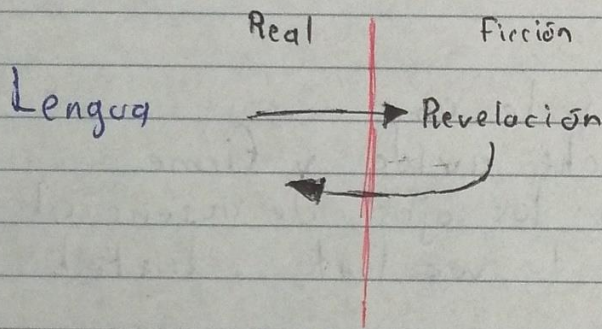 Real Ficción
Lengua Revelación